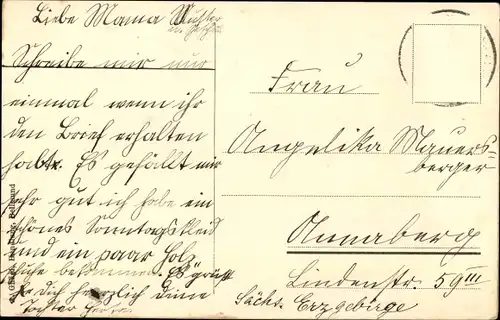 Liebe Mama
Schreibe mir nur
einmal wenn ihr
den Brief erhalten
habt. Es gefällt mir
sehr gut ich habe ein
schönes Sonntagskleid
und ein paar Holz
schuhe bekommen. Es grüßt
Dich herzlich deine
Tochter
Frau
Angelika Mauers-
berger
Annaberg
Lindenstr. 59 III
Sächs. Erzgebirge